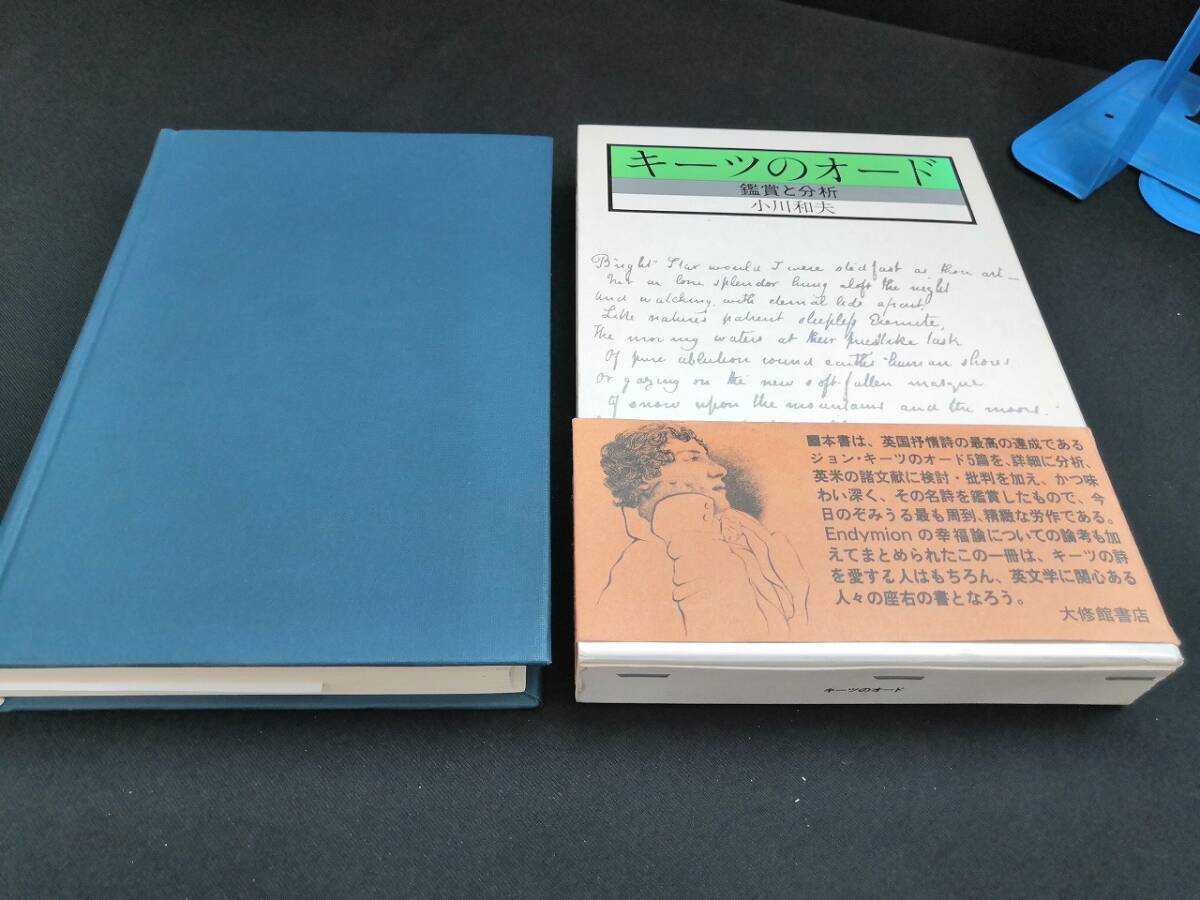 キーツのオード
鑑賞と分析
小川和夫
Bright Star would I were stedfast as thou art—
Not in lone splendor hung aloft the night
And watching, with eternal lids apart,
Like nature's patient sleepless Eremite,
The moving waters at their priestlike task
Of pure ablution round earth's human shores
Or gazing on the new soft-fallen masque
Of snow upon the mountains and the moors.
■本書は、英国抒情詩の最高の達成である
ジョン・キーツのオード5篇を、詳細に分析、
英米の諸文献に検討・批判を加え、かつ味
わい深く、その名詩を鑑賞したもので、今
日のぞみうる最も周到、精緻な労作である。
Endymionの幸福論についての論考も加
えてまとめられたこの一冊は、キーツの詩
を愛する人はもちろん、英文学に関心ある
人々の座右の書となろう。
大修館書店
キーツのオード